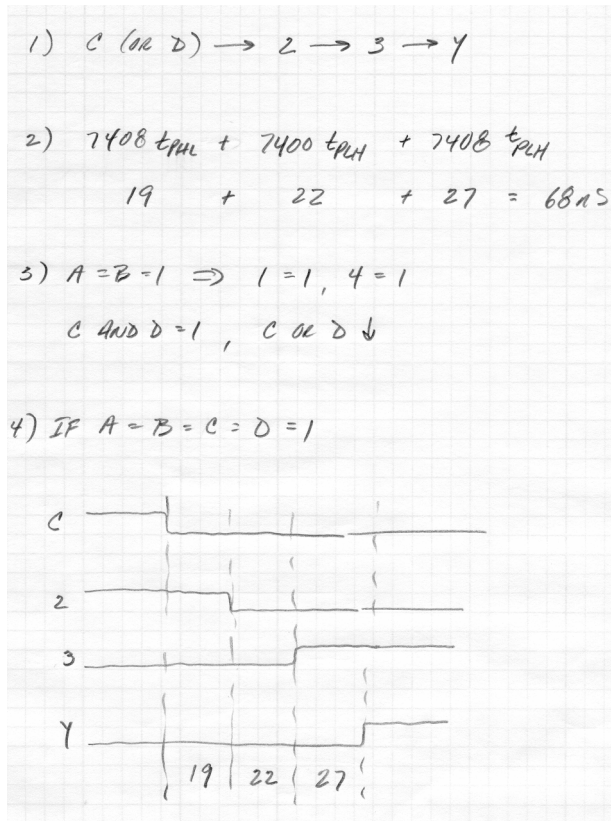 1) C (OR D) → 2 → 3 → Y
2) 7408 tPHL + 7400 tPLH + 7408 tPLH
19 + 22 + 27 = 68nS
3) A = B = 1 ⇒ 1 = 1, 4 = 1
C AND D = 1, C OR D ↓
4) IF A = B = C = D = 1
C
2
3
Y
19 22 27